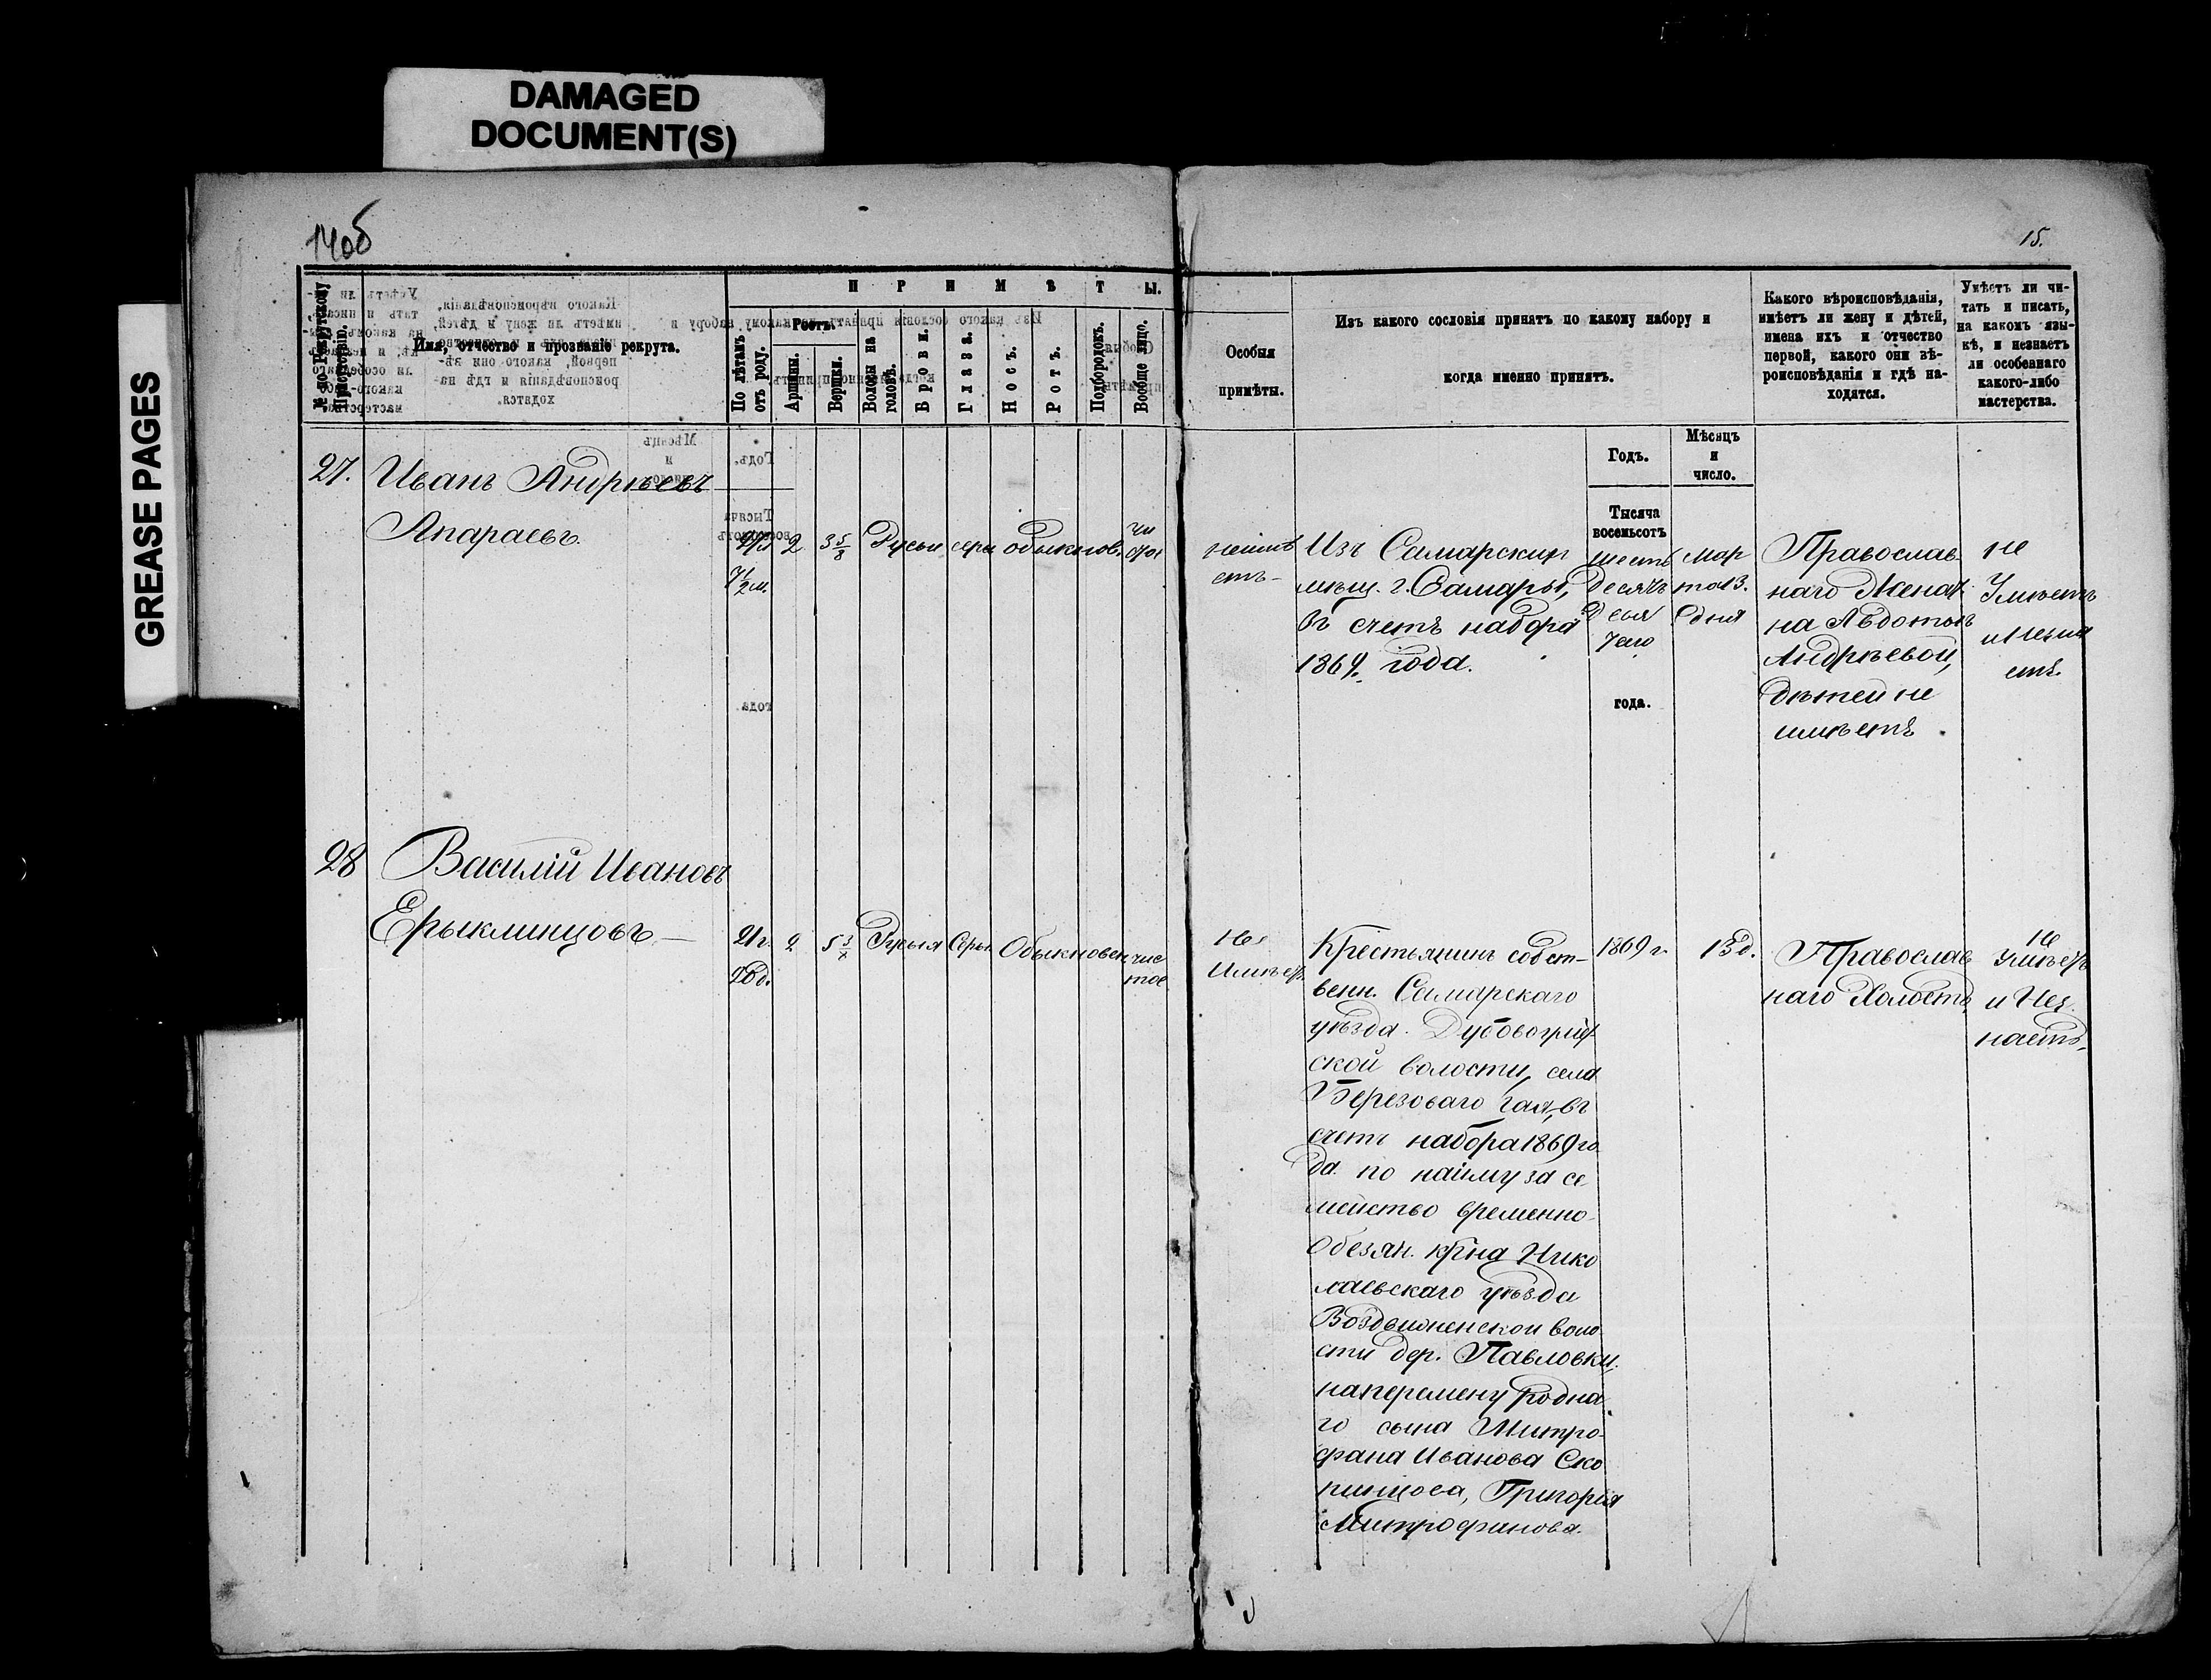 DAMAGED
DOCUMENT(S)
GREASE PAGES
14об
15.
№ по Рекрутскому Присутствію.
Имя, отчество и прозваніе рекрута.
ПРИМѢТЫ.
По лѣтамъ отъ роду.
Ростъ.
Аршины.
Вершки.
Волосы на головѣ.
Брови.
Глаза.
Носъ.
Ротъ.
Подбородокъ.
Вообще лицо.
Особыя
примѣты.
Изъ какого сословія принятъ по какому набору и
когда именно принятъ.
Какого вѣроисповѣданія,
имѣетъ ли жену и дѣтей,
имена ихъ и отчество
первой, какого они вѣ-
роисповѣданія и гдѣ на-
ходятся.
Умѣетъ ли чи-
тать и писать,
на какомъ язы-
кѣ, и незнаетъ
ли особеннаго
какого-либо
мастерства.
Годъ.
Мѣсяцъ
и
число.
Тысяча
восемьсотъ
года.
27. Иванъ Андрѣевъ
Апараевъ.
2 3 5/8 Русы серы обыкнов.
7 1/2 м.
Изъ Самарских
мѣщ. г. Самары,
въ счетъ набора
1869. года.
шесть
десятъ
девя
таго
Мар
та 13.
дня
Православ
наго Женат
на Авдотьѣ
Андрѣевой,
дѣтей не
имѣетъ.
не
Умѣетъ
28 Василій Ивановъ
Ерыклинцовъ —
21 г. 2 Русыя Серы Обыкновен чис
тое
20 д.
Не
Имѣетъ
Крестьянинъ собст-
венн. Самарскаго
уѣзда. Дубовоумёт
ской волости, села
Березоваго Гая, въ
счетъ набора 1869 го
да по найму за се
мейство временно-
Обезян. кр-на Нико
лаевскаго уѣзда
Воздвиженской воло
сти дер. Павловки,
наперемену родна
го сына Митро-
фана Иванова Ско
пинцова, Григорья
Митрофанова.
1869 г.
13 д.
Православ
наго Холостъ,
не
умѣетъ
и Нез
наетъ.